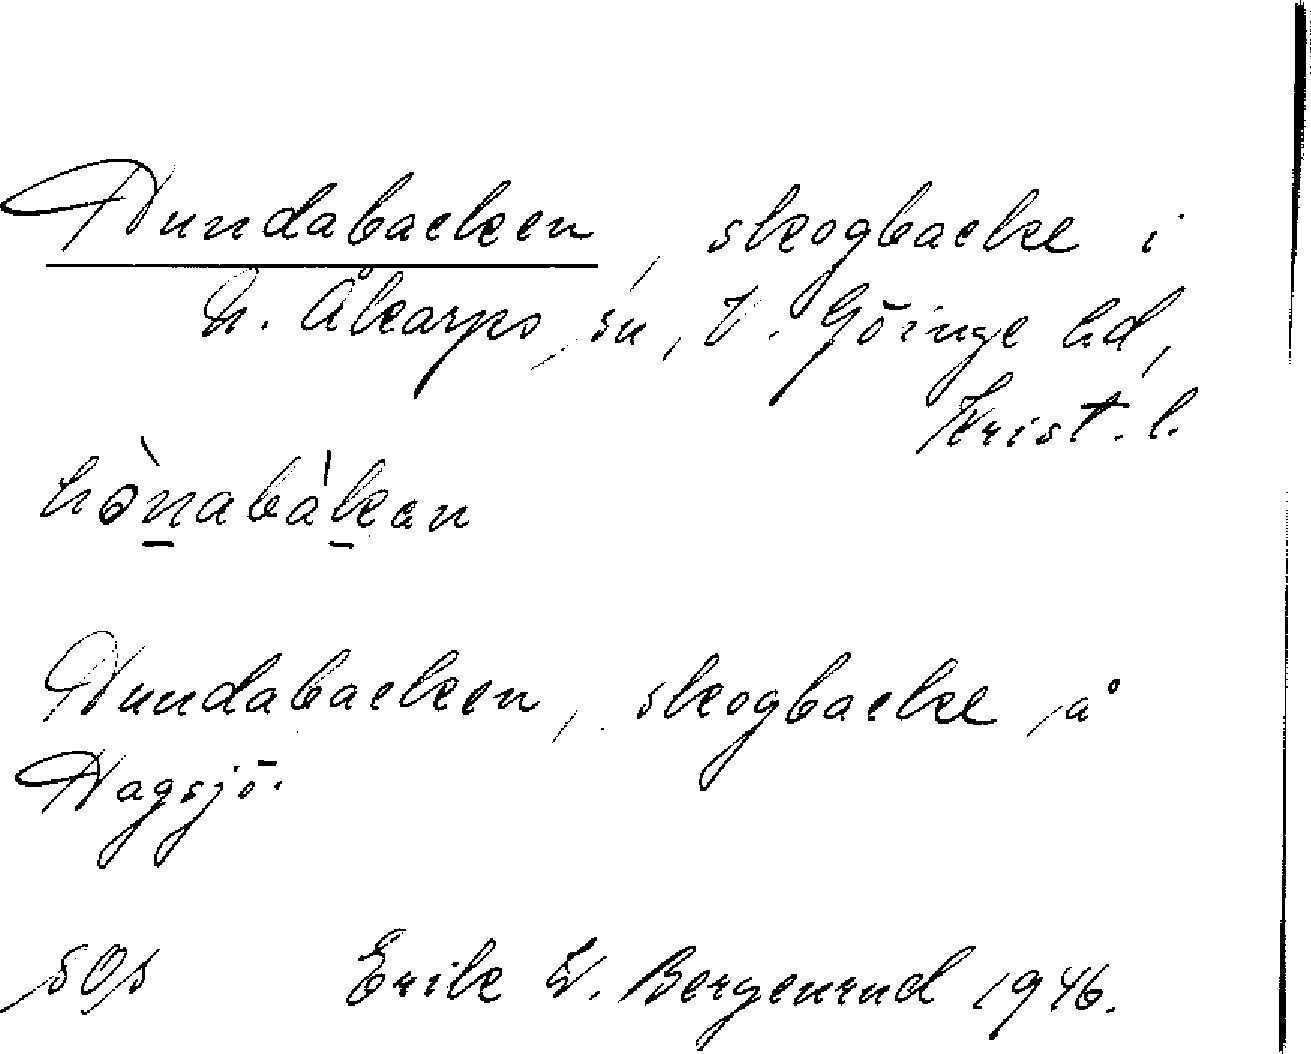 Hundabacken, skogbacke i
N. Åkarps sn, V. Göinge hd,
Krist. l.
hònabàkan
Hundabacken, skogbacke å
Hagsjö.
SOS Erik W. Bergenrud 1946.